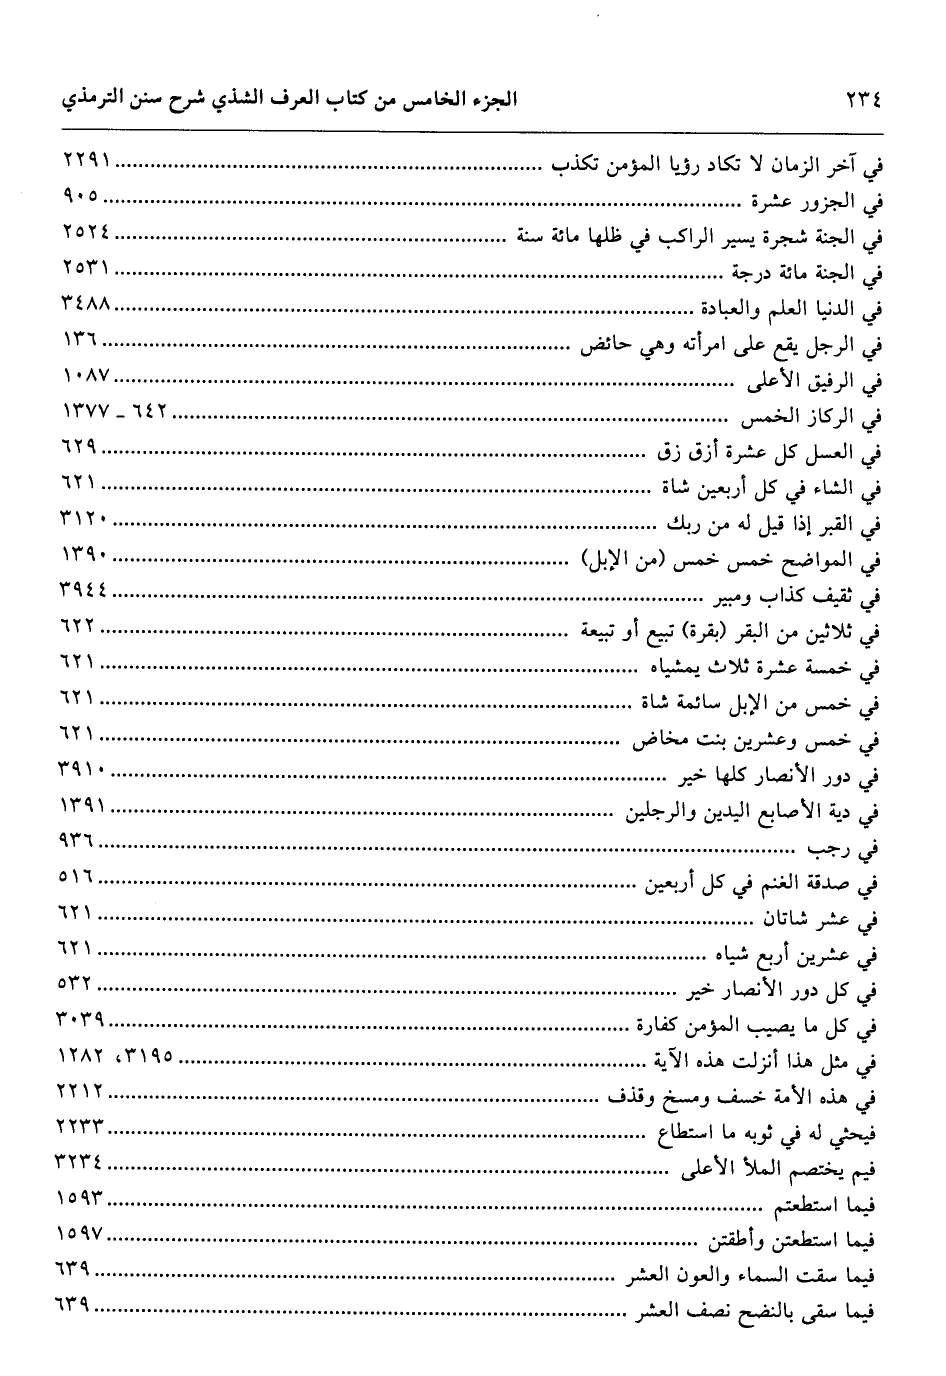 ٢٣٤ الجزء الخامس من كتاب العرف الشذي شرح سنن الترمذي
في آخر الزمان لا تكاد رؤيا المؤمن تكذب ........ ٢٢٩١
في الجزور عشرة ........ ٩٠٥
في الجنة شجرة يسير الراكب في ظلها مائة سنة ........ ٢٥٢٤
في الجنة مائة درجة ........ ٢٥٣١
في الدنيا العلم والعبادة ........ ٣٤٨٨
في الرجل يقع على امرأته وهي حائض ........ ١٣٦
في الرفيق الأعلى ........ ١٠٨٧
في الركاز الخمس ........ ٦٤٢ - ١٣٧٧
في العسل كل عشرة أزق زق ........ ٦٢٩
في الشاء في كل أربعين شاة ........ ٦٢١
في القبر إذا قيل له من ربك ........ ٣١٢٠
في المواضح خمس خمس (من الإبل) ........ ١٣٩٠
في ثقيف كذاب ومبير ........ ٣٩٤٤
في ثلاثين من البقر (بقرة) تبيع أو تبيعة ........ ٦٢٢
في خمسة عشرة ثلاث يمشياه ........ ٦٢١
في خمس من الإبل سائمة شاة ........ ٦٢١
في خمس وعشرين بنت مخاض ........ ٦٢١
في دور الأنصار كلها خير ........ ٣٩١٠
في دية الأصابع اليدين والرجلين ........ ١٣٩١
في رجب ........ ٩٣٦
في صدقة الغنم في كل أربعين ........ ٥١٦
في عشر شاتان ........ ٦٢١
في عشرين أربع شياه ........ ٦٢١
في كل دور الأنصار خير ........ ٥٣٢
في كل ما يصيب المؤمن كفارة ........ ٣٠٣٩
في مثل هذا أنزلت هذه الآية ........ ٣١٩٥، ١٢٨٢
في هذه الأمة خسف ومسخ وقذف ........ ٢٢١٢
فيحثي له في ثوبه ما استطاع ........ ٢٢٣٣
فيم يختصم الملأ الأعلى ........ ٣٢٣٤
فيما استطعتم ........ ١٥٩٣
فيما استطعتن وأطقتن ........ ١٥٩٧
فيما سقت السماء والعون العشر ........ ٦٣٩
فيما سقى بالنضح نصف العشر ........ ٦٣٩